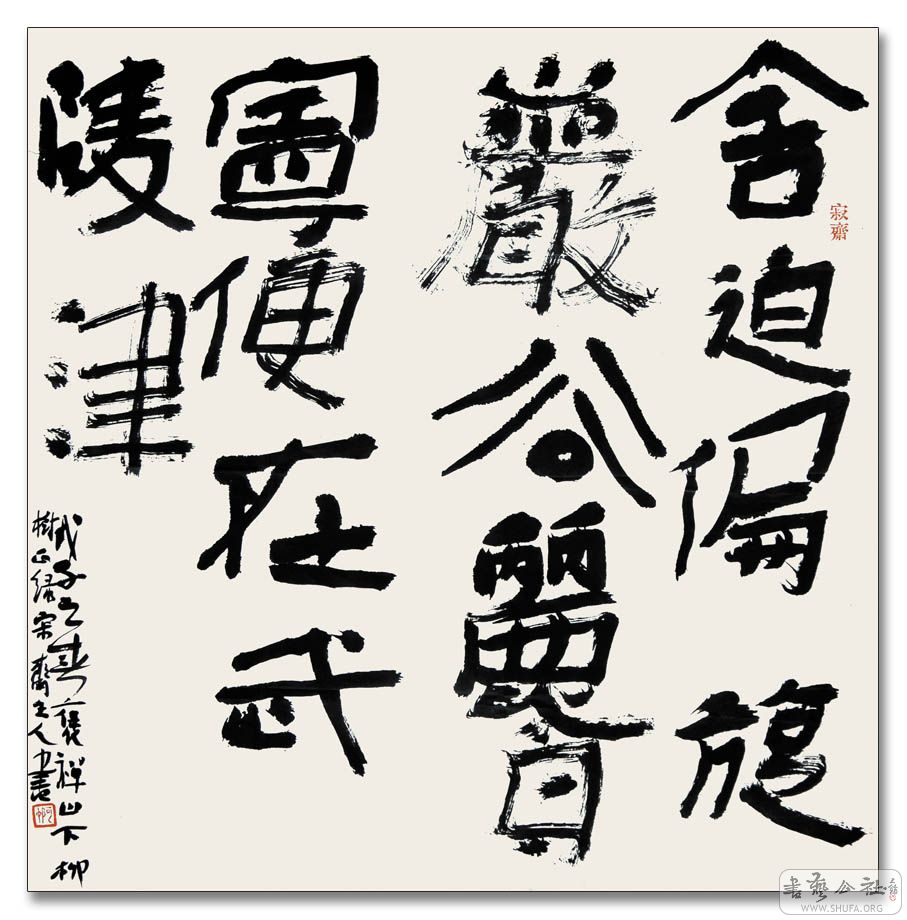 舍迫偏旋
寂齋
嚴公
寧便在武
陵津
戊子之春褒禪山下柳
樹正綠寂齋主人書
書藝公社
WWW.SHUFA.ORG